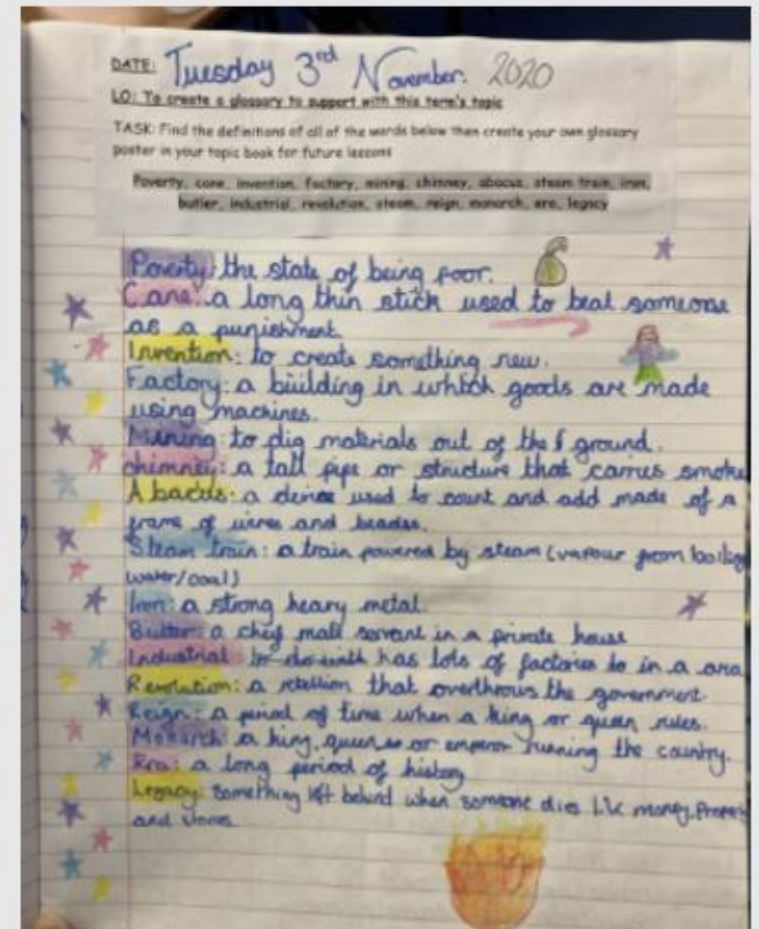 DATE: Tuesday 3rd November. 2020
LO: To create a glossary to support with this term's topic
TASK: Find the definitions of all of the words below then create your own glossary
poster in your topic book for future lessons
Poverty, cane, invention, factory, mining, chimney, abacus, steam train, iron,
butler, industrial, revolution, steam, reign, monarch, era, legacy
Poverty: the state of being poor.
Cane: a long thin stick used to beat someone
as a punishment
Invention: to create something new.
Factory: a building in which goods are made
using machines.
Mining: to dig materials out of the ground.
chimney: a tall pipe or structure that carries smoke
Abacus: a device used to count and add made of a
frame of wires and beades.
Steam train: a train powered by steam (vapour from boiling
water/coal)
Iron: a strong heavy metal.
Butler: a chief male servant in a private house
Industrial: to do with has lots of factories to in a area
Revolution: a rebellion that overthrows the government.
Reign: a period of time when a king or queen rules.
Monarch: a king, queen or emperor running the country.
Era: a long period of history
Legacy: something left behind when someone dies like money,
and